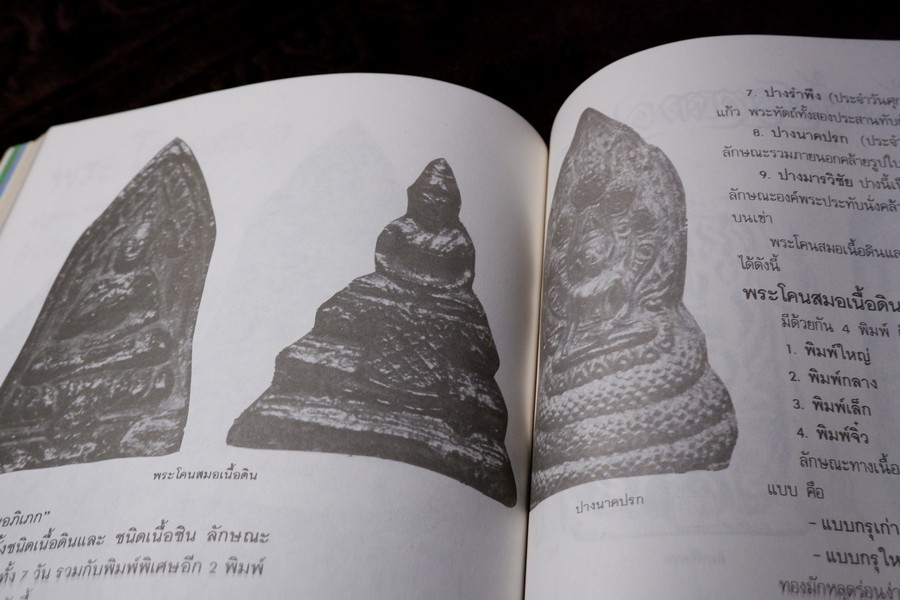 พระโคนสมอเนื้อดิน
อภิเภก"
ชนิดเนื้อดินและ ชนิดเนื้อชิน ลักษณะ
ทั้ง 7 วัน รวมกับพิมพ์พิเศษอีก 2 พิมพ์
ปางนาคปรก
7. ปางรำพึง (ประจำวันศุก
แก้ว พระหัตถ์ทั้งสองประสานทับ
8. ปางนาคปรก (ประจำ
ลักษณะรวมภายนอกคล้ายรูปใบ
9. ปางมารวิชัย ปางนี้
ลักษณะองค์พระประทับนั่ง
บนเข่า
พระโคนสมอเนื้อดินและ
ได้ดังนี้
พระโคนสมอเนื้อดิน
มีด้วยกัน 4 พิมพ์
1. พิมพ์ใหญ่
2. พิมพ์กลาง
3. พิมพ์เล็ก
4. พิมพ์จิ๋ว
ลักษณะทางเนื้อ
แบบ คือ
- แบบกรุเก่า
- แบบกรุให
ทองมักหลุดร่อนง่า